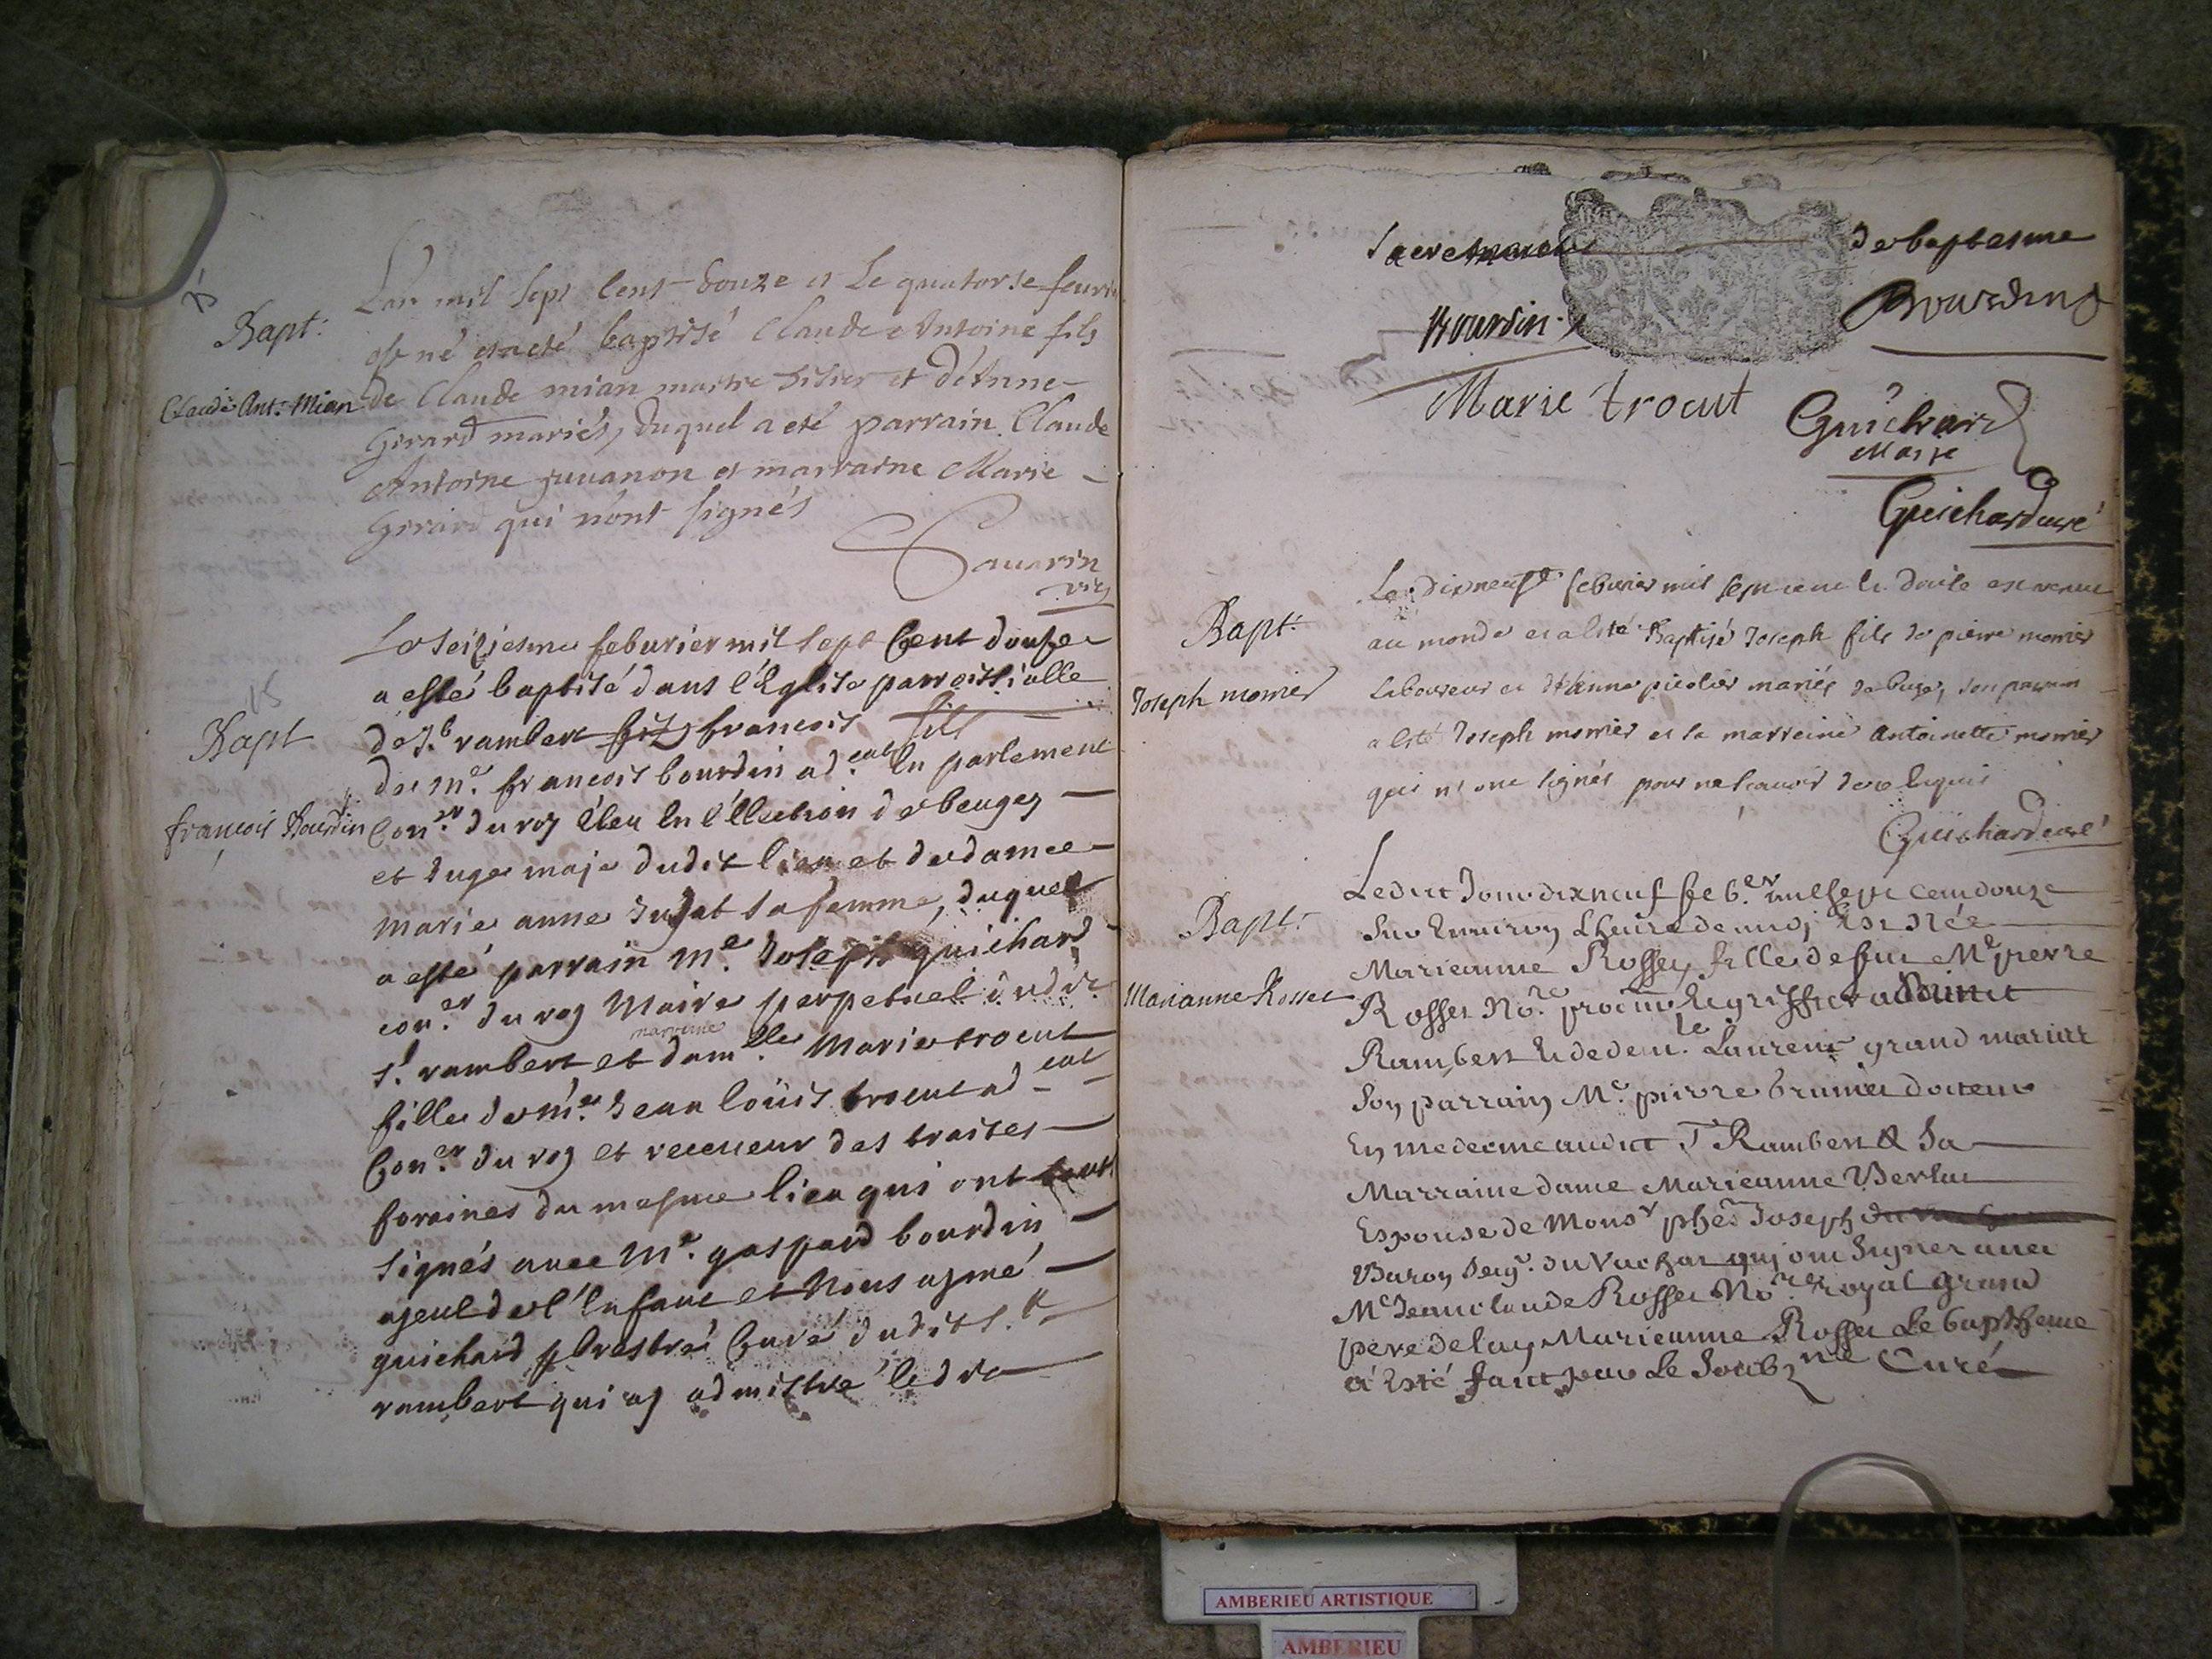 Bapt:
Claude Ant: Mian
L'an mil sept cent douze et le quatorse feuvrier
est né et a eté baptisé Claude Antoine fils
de Claude mian maitre tisier et d'Anne
Girard mariés, duquel a eté parrain Claude
Antoine juvanon et marraine Marie
Girard qui n'ont signés
Savarin
vic
15
Bapt
françois Bourdin
Le seiziesme feburier mil sept Cent douse
a esté baptisé dans l'Eglise parroissialle
de st rambert fils françois fils
de me. françois bourdin ad.cat En parlement
Con.er du roy Eleu En l'Ellection de beugey
et Juge maje dudit lieu et de dame
marie anne Jujat sa femme, duquel
a esté parrain me. Joseph guichard
con.er du roy Maire perpetuel dudit
st. rambert et marreine dam.lle Marie trocut
fille de me. Jean loüis trocut ad-cat
Con.er du roy et receueur des traites
foraines du mesme lieu qui ont tous
signés auec Me. gaspard bourdin
ayeul de l'Enfant et Nous aymé
guichard prestre Curé dudit st
rambert qui ay admistré ledit
sacrement de baptesme
Bourdin
Bourdin
Marie trocut
Guichard
Maire
Guichard curé
Bapt:
Joseph monier
Le dixneuf feburier mil sept cent et douse est venu
au monde et a esté Baptisé Joseph fils de pierre monier
Laboureur et d'Anne picolier mariés de buges, son parrain
a esté Joseph monier et sa marreine Antoinette monier
qui n'ont signés pour ne scavoir de ce Enquis
Guichard curé
Bapt:
Marianne Rosset
Ledit Jour dixneuf feb.er mil sept cent douze
Sur Enuiron L'heure de midj Est Née
Marieanne Rosset, fille de feu Me pierre
Rosset No.re procur & greffier a Saint
Rambert & de dem.le Laurence grand mariés
Son parrain Me. pierre brunier docteur
En medecine audit St Rambert & Sa
Marraine dame Marieanne Berlier
Espouse de Monsr Joseph
Baron Seigr. du Vachat qui ont Signer avec
Me Jeanclaude Rosset No.re royal grand
pere de lad. Marieanne Rosset Le baptheme
a Esté fait par Le Soubz.ne Curé
AMBERIEU ARTISTIQUE
AMBERIEU